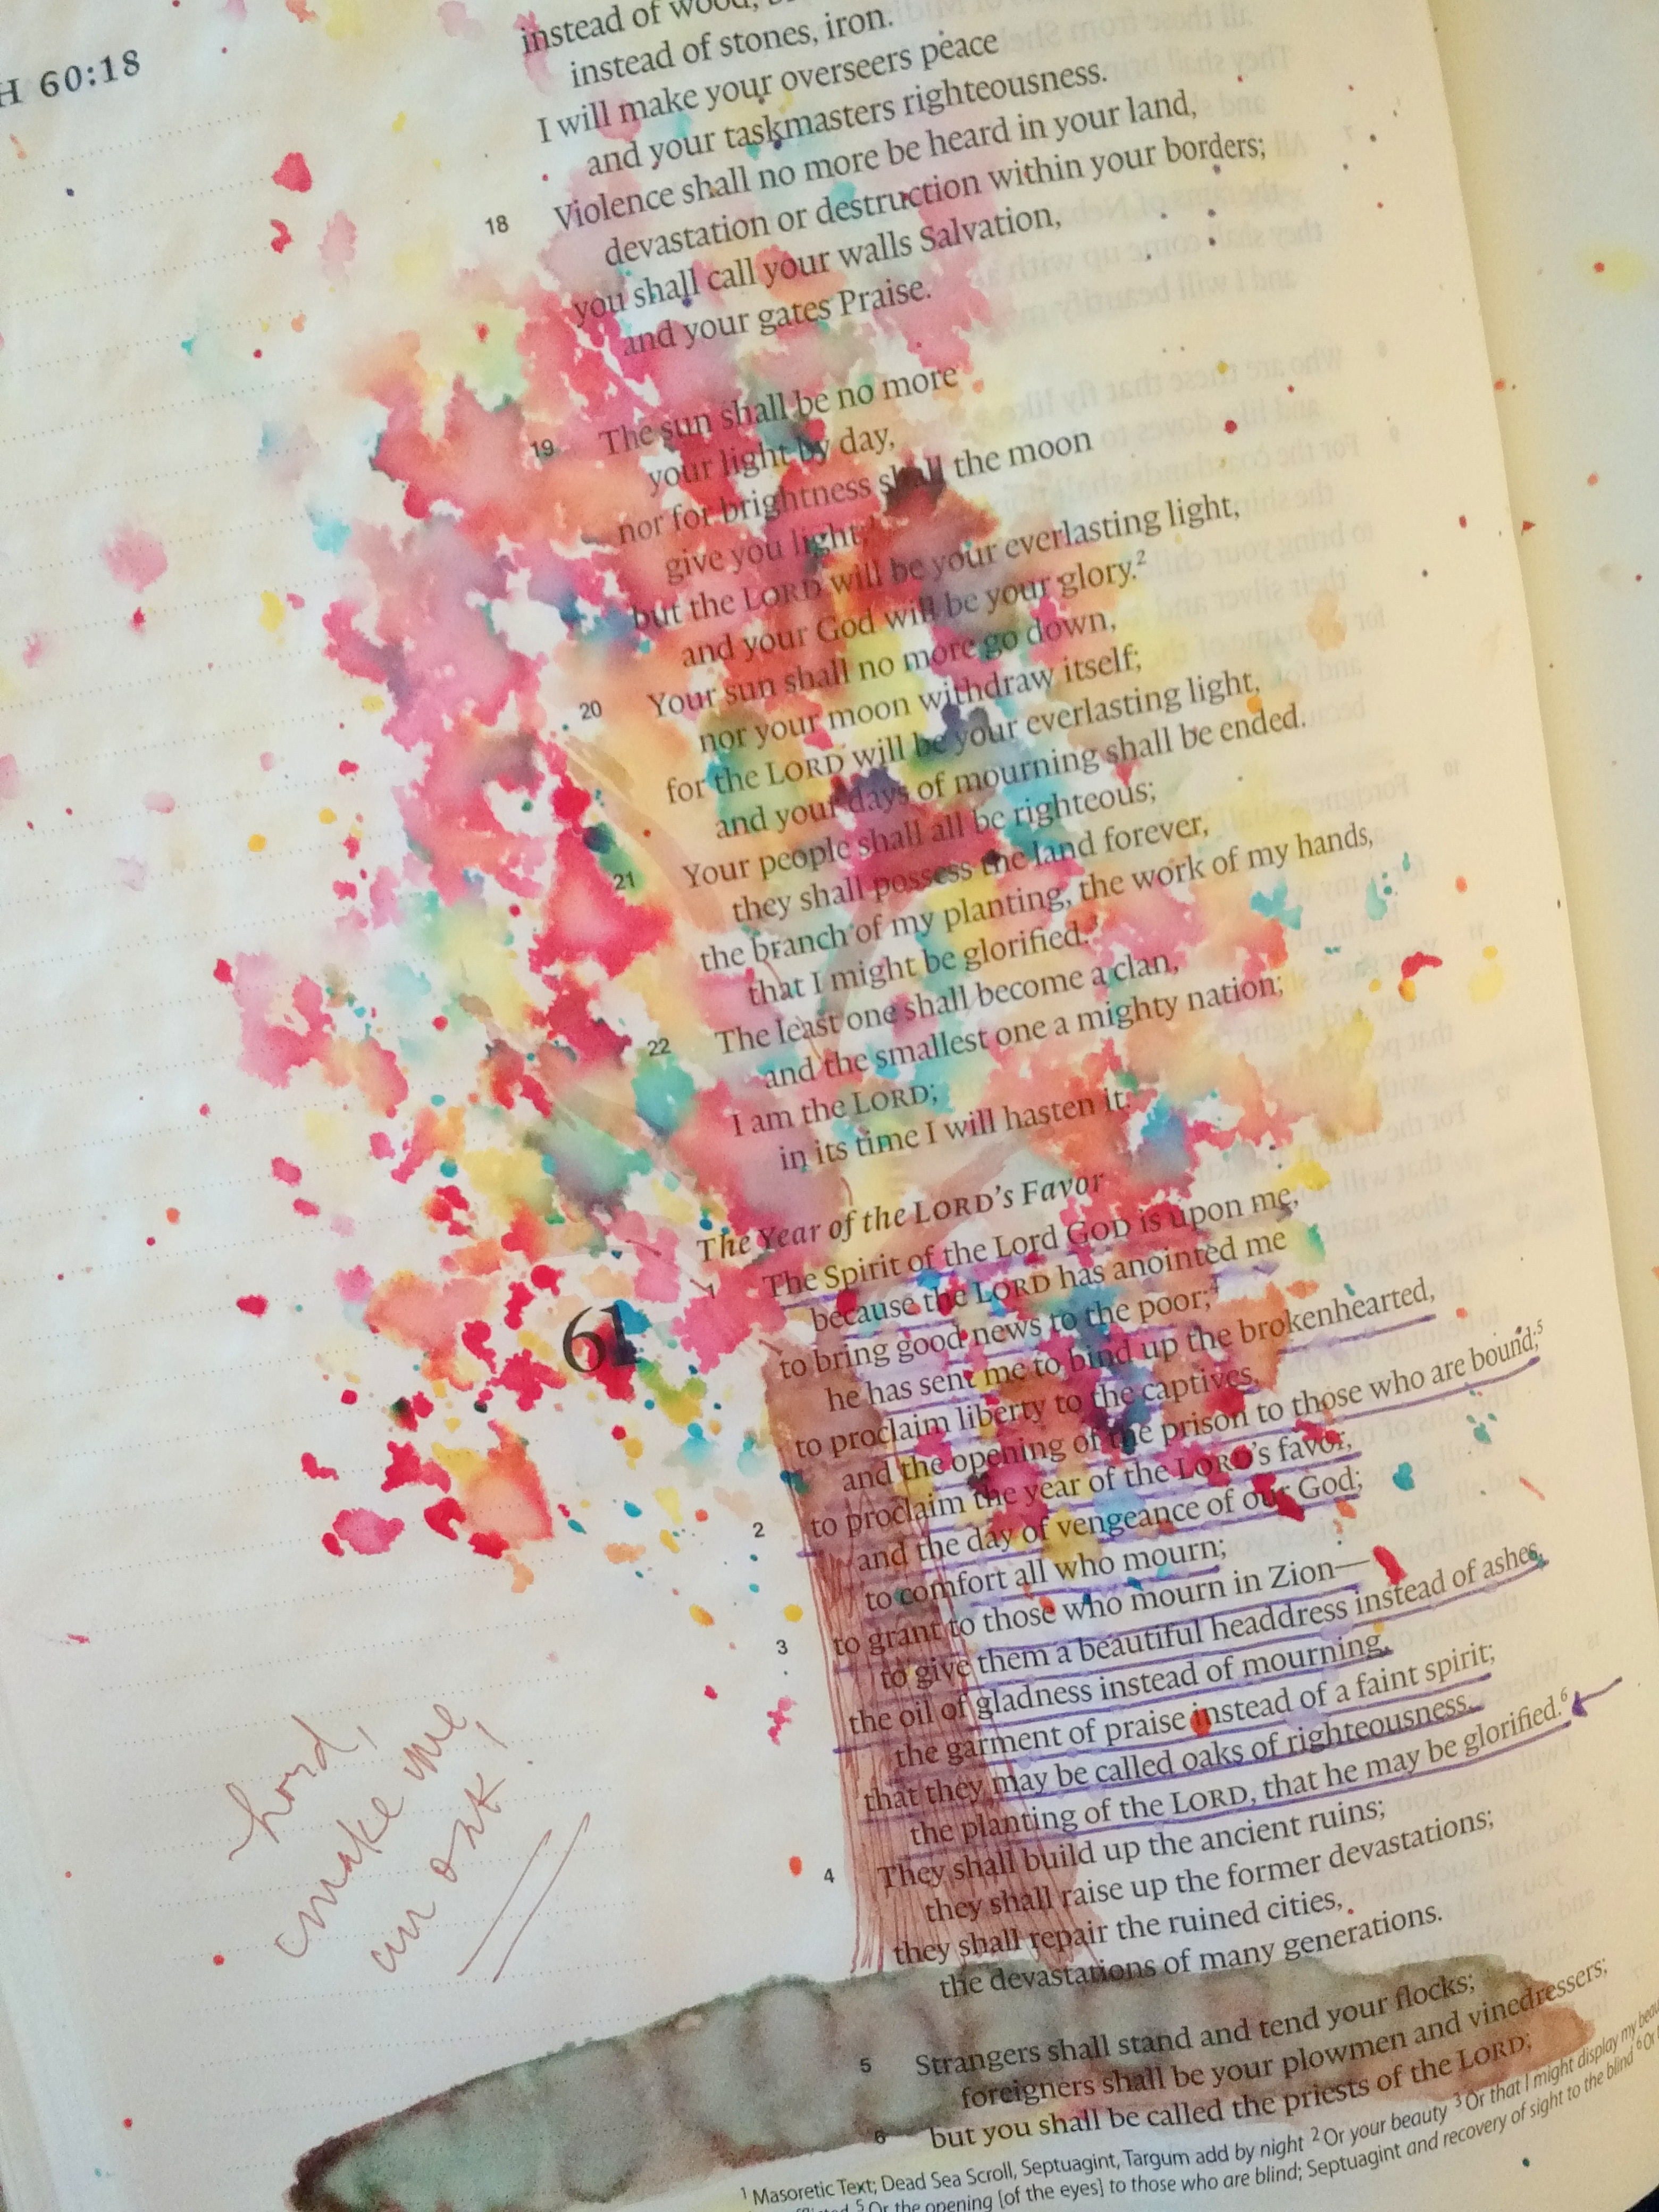 H 60:18
instead of wood,
instead of stones, iron.
I will make your overseers peace
and your taskmasters righteousness.
18 Violence shall no more be heard in your land,
devastation or destruction within your borders;
you shall call your walls Salvation,
and your gates Praise.
19 The sun shall be no more
your light by day,
nor for brightness shall the moon
give you light;1
but the LORD will be your everlasting light,
and your God will be your glory.2
20 Your sun shall no more go down,
nor your moon withdraw itself;
for the LORD will be your everlasting light,
and your days of mourning shall be ended.
21 Your people shall all be righteous;
they shall possess the land forever,
the branch of my planting, the work of my hands,
that I might be glorified.3
22 The least one shall become a clan,
and the smallest one a mighty nation;
I am the LORD;
in its time I will hasten it.
The Year of the LORD's Favor
61 1 The Spirit of the Lord GOD is upon me,
because the LORD has anointed me
to bring good news to the poor;4
he has sent me to bind up the brokenhearted,
to proclaim liberty to the captives,
and the opening of the prison to those who are bound;5
2 to proclaim the year of the LORD's favor,
and the day of vengeance of our God;
to comfort all who mourn;
3 to grant to those who mourn in Zion—
to give them a beautiful headdress instead of ashes,
the oil of gladness instead of mourning,
the garment of praise instead of a faint spirit;
that they may be called oaks of righteousness,
the planting of the LORD, that he may be glorified.6
4 They shall build up the ancient ruins;
they shall raise up the former devastations;
they shall repair the ruined cities,
the devastations of many generations.
5 Strangers shall stand and tend your flocks;
foreigners shall be your plowmen and vinedressers;
6 but you shall be called the priests of the LORD;
1 Masoretic Text; Dead Sea Scroll, Septuagint, Targum add by night 2 Or your beauty 3 Or that I might display my
5 Or the opening [of the eyes] to those who are blind; Septuagint and recovery of sight to the blind 6 Or
Lord,
make me
an oak.